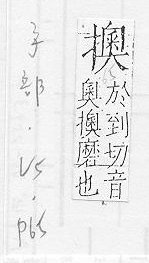 手部.V5.p65
擙於到切音
奧擙磨也